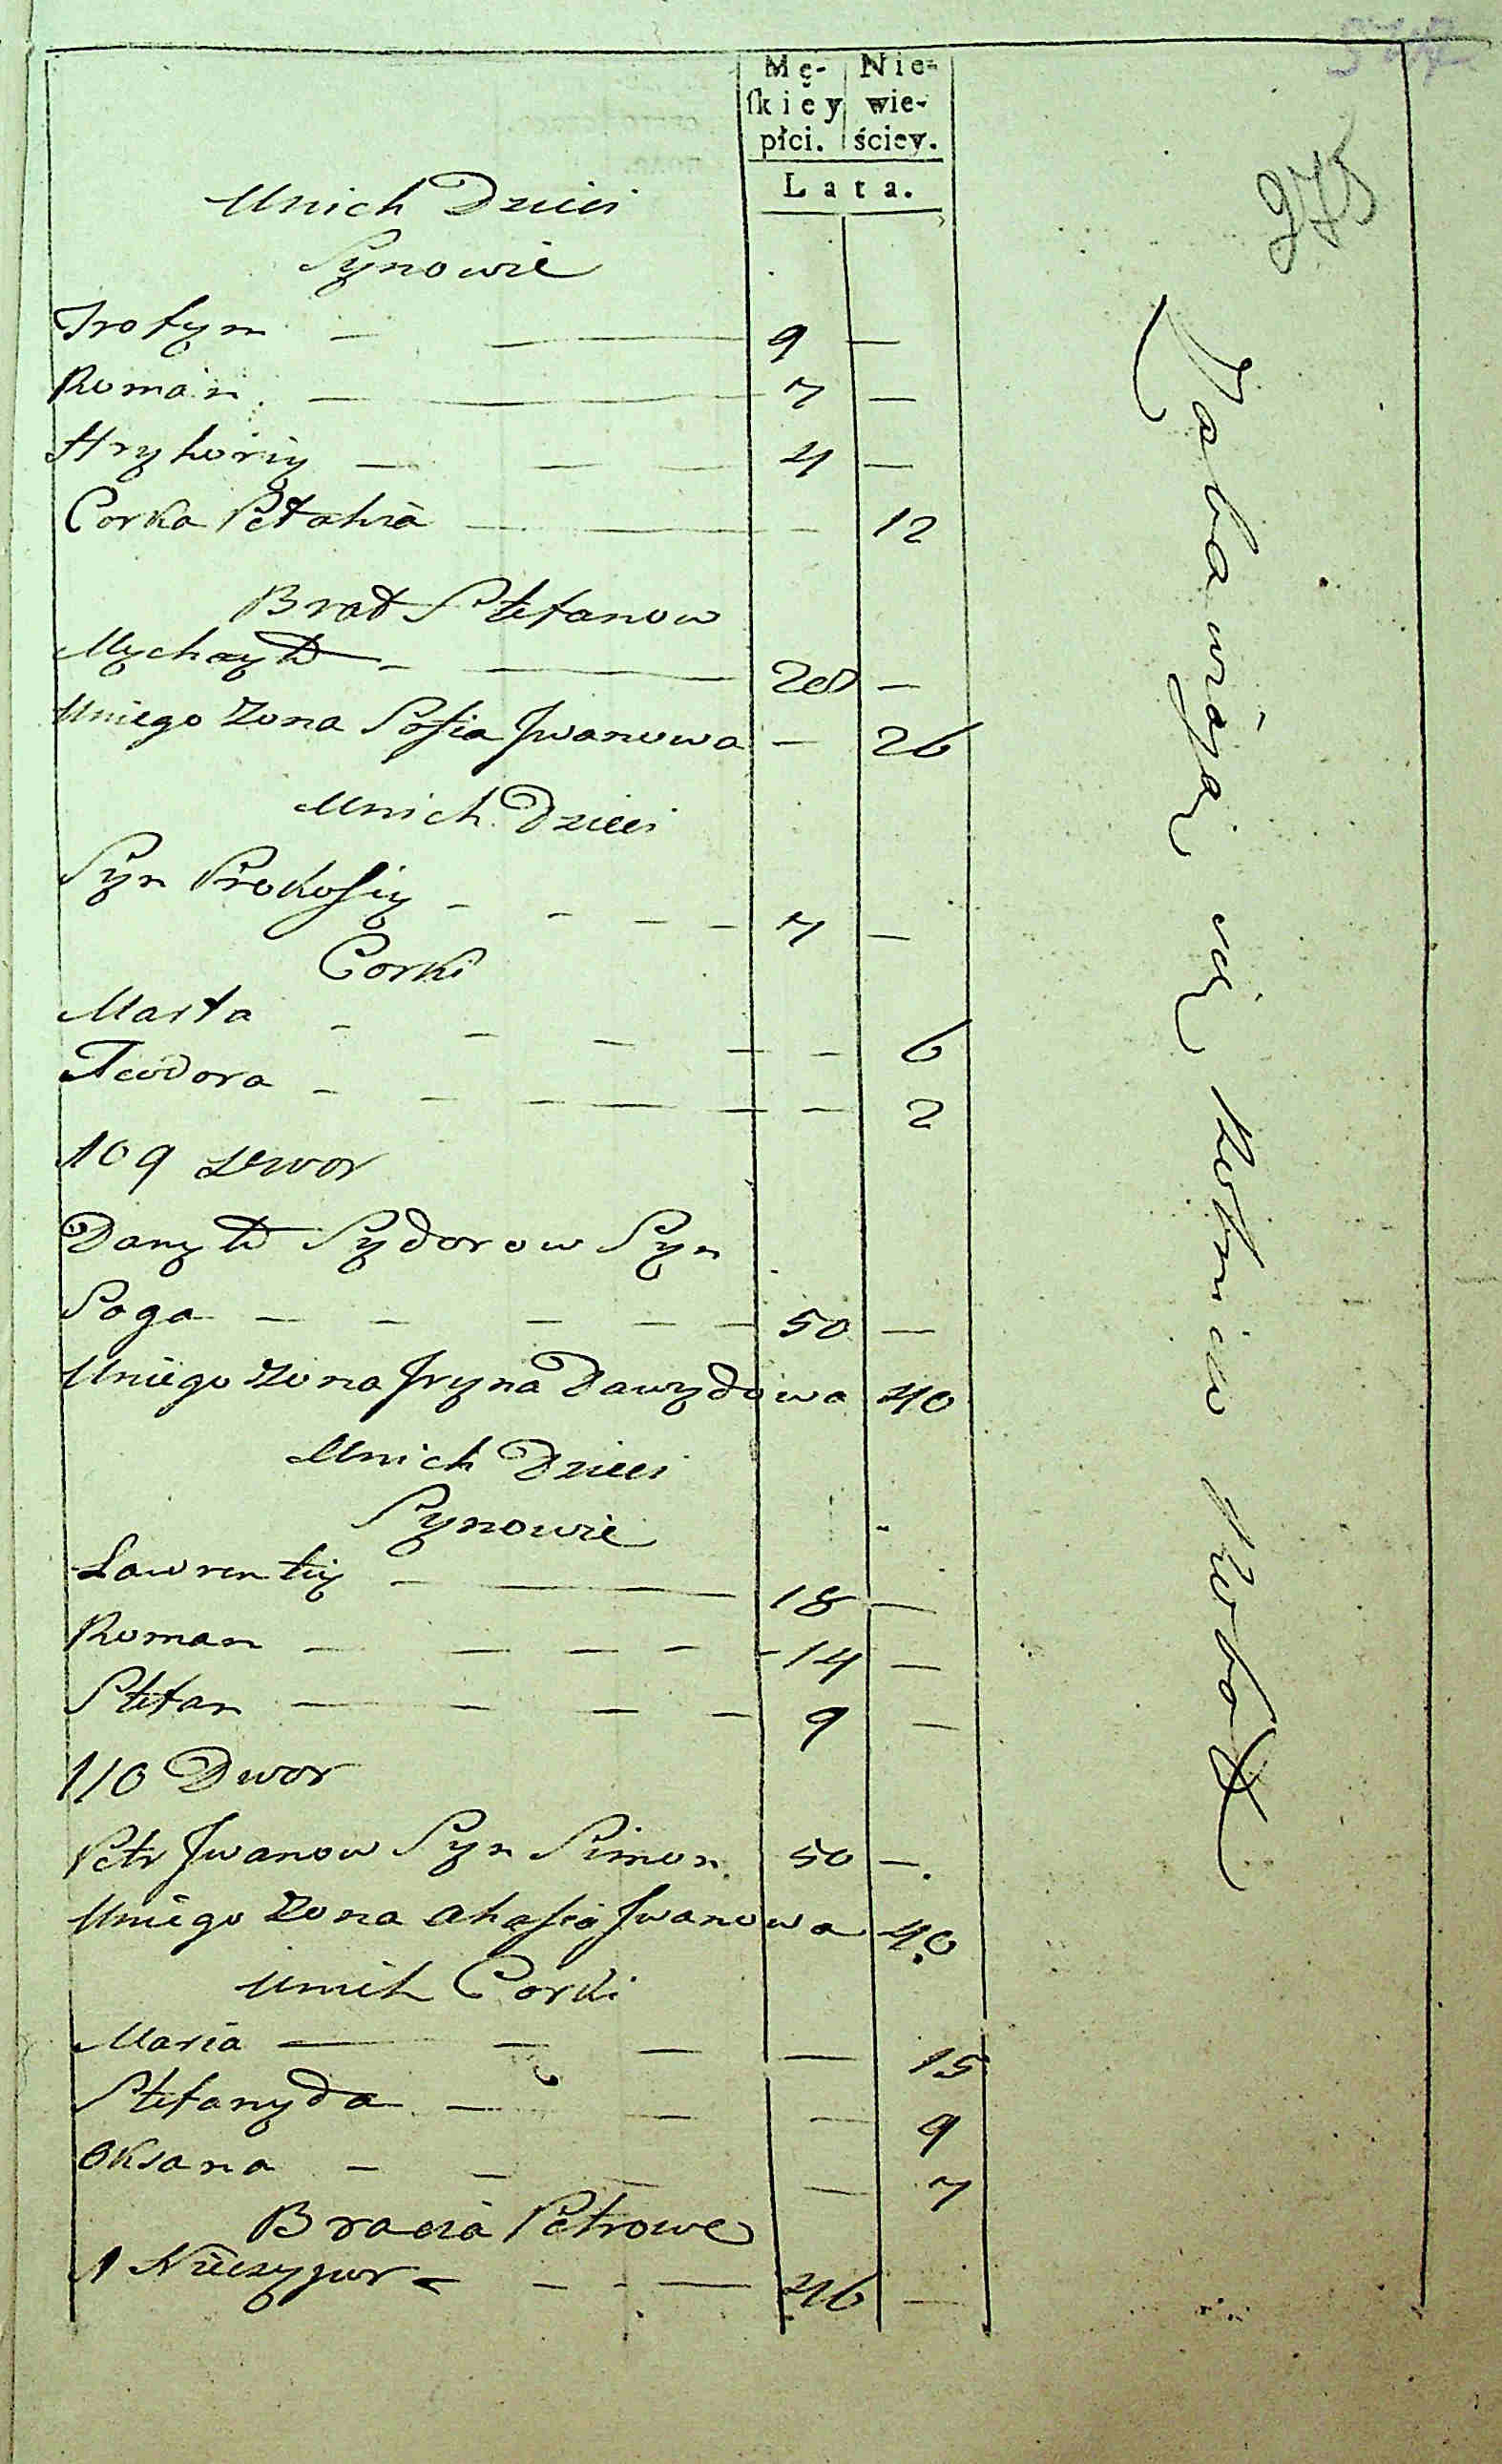 Mę- Nie-
ſkiey wie-
płci. ściey.
Lata.
275
Unich Dzieci
Synowie
Trofym — — 9 —
Roman — — 7 —
Hryhoriy — — — 4 —
Corka Pełahia — — — 12
Brat Stefanow
Mychayło — — 28 —
Uniego Zona Sofia Jwanowa — 26
Unich Dzieci
Syn Prokofiy — — — — 7 —
Corki
Marta — — — — — 6
Teodora — — — — — — 2
109 Dwor
Danyło Sydorow Syn
Soga — — — — — 50 —
Uniego Zona Jryna Dawydowa 40
Unich Dzieci
Synowie
Lawrentiy — — 18 —
Roman — — — — - 14 —
Stefan — — — — 9 —
110 Dwor
Petr Jwanow Syn Simon 50 —
Uniego Zona Ahafia Jwanowa 40
Unich Corki
Maria — — — — 15
Stefanyda — — — 9
Oksana — — — — 7
Bracia Petrowe
1 Nieczypor — — - — 46 —
Zabawiają się